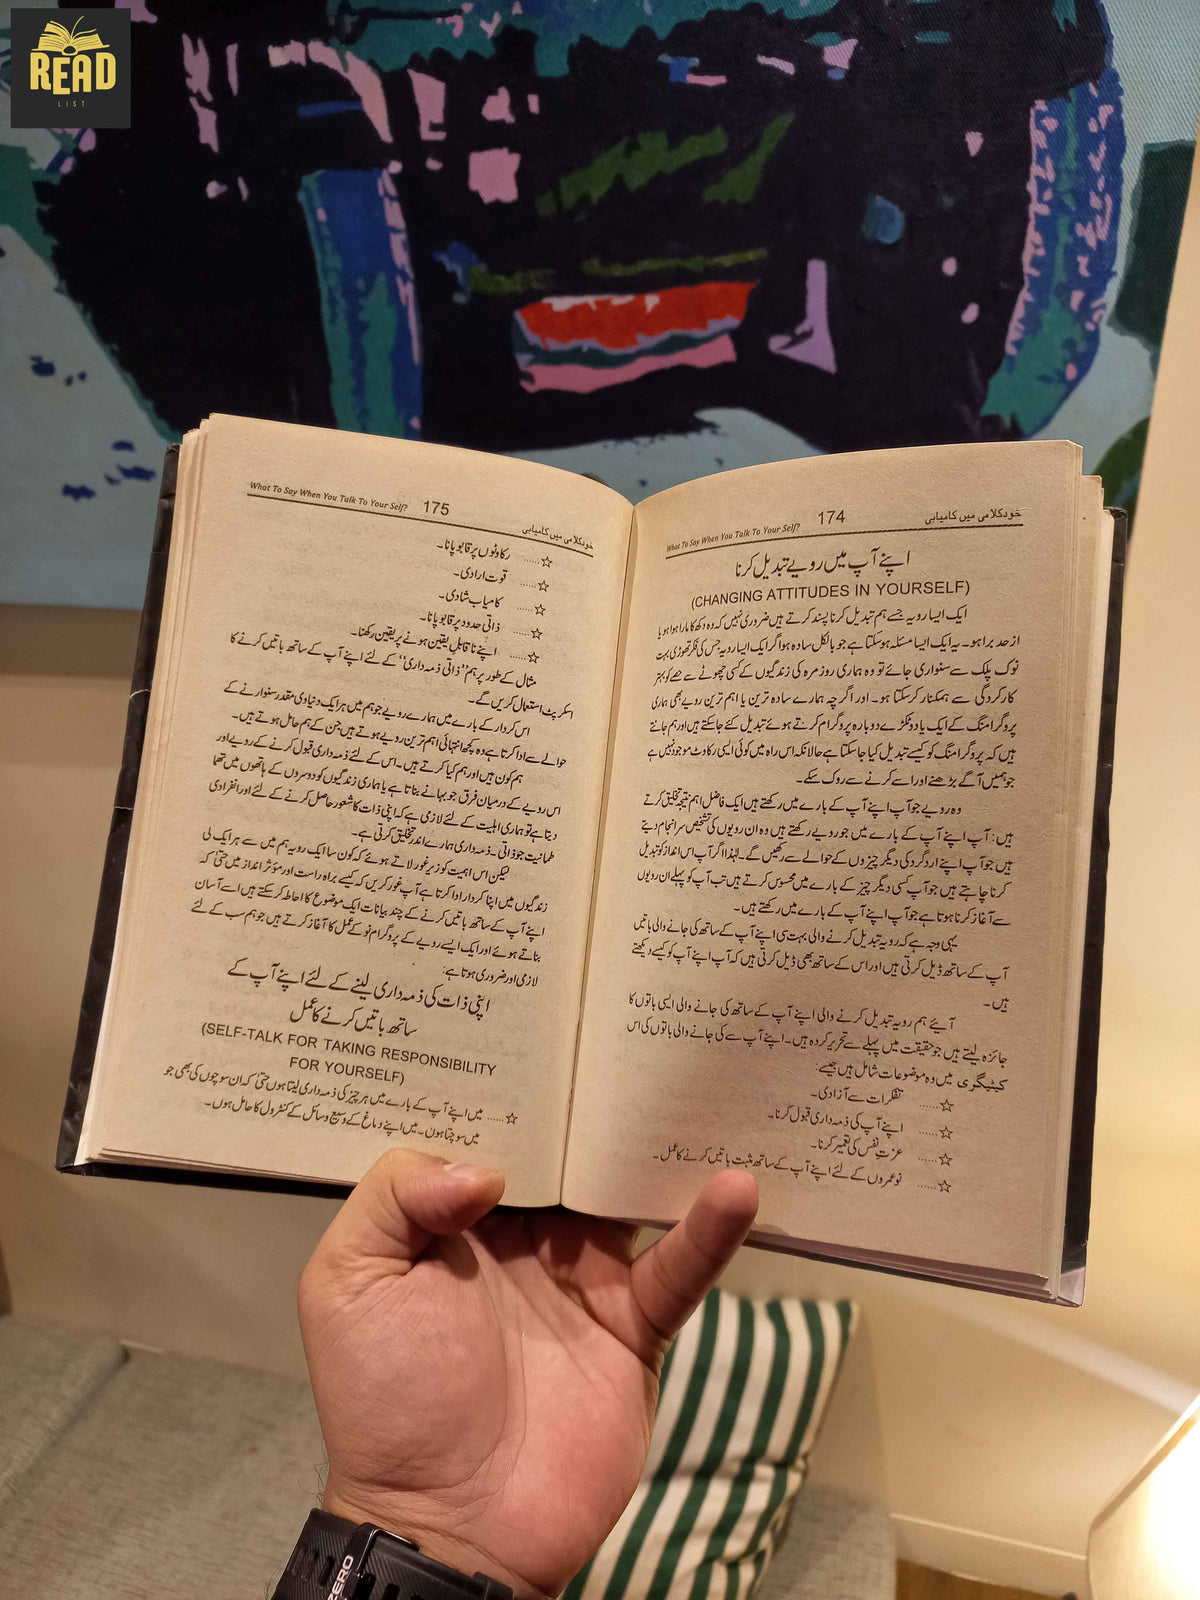 READ
LIST
What To Say When You Talk To Your Self? 174 خود کلامی میں کامیابی
اپنے آپ میں رویے تبدیل کرنا
(CHANGING ATTITUDES IN YOURSELF)
ایک ایسا رویہ جسے ہم تبدیل کرنا پسند کرتے ہیں ضروری نہیں کہ وہ دکھ کا مارا ہوا ہو یا
از حد برا ہو۔ یہ ایک ایسا مسئلہ ہوسکتا ہے جو بالکل سادہ ہو اگر ایک ایسا رویہ جس کی فکر تھوڑی بہت
نوک پلک سے سنواری جائے تو وہ ہماری روزمرہ کی زندگیوں کے کسی چھوٹے سے حصے کو بہتر
کارکردگی سے ہمکنار کرسکتا ہو۔ اور اگرچہ ہمارے سادہ ترین یا اہم ترین رویے بھی ہماری
پروگرامنگ کے ایک یا دو ٹکڑے دوبارہ پروگرام کرتے ہوئے تبدیل کئے جاسکتے ہیں اور ہم جانتے
ہیں کہ پروگرامنگ کو کیسے تبدیل کیا جاسکتا ہے حالانکہ اس راہ میں کوئی ایسی رکاوٹ موجود نہیں ہے
جو ہمیں آگے بڑھنے اور اسے کرنے سے روک سکے۔
وہ رویے جو آپ اپنے آپ کے بارے میں رکھتے ہیں ایک فاضل اہم نتیجہ تخلیق کرتے
ہیں: آپ اپنے آپ کے بارے میں جو رویے رکھتے ہیں وہ ان رویوں کی تشخیص سرانجام دیتے
ہیں جو آپ اپنے اردگرد کی دیگر چیزوں کے حوالے سے رکھیں گے۔ لہٰذا اگر آپ اس انداز کو تبدیل
کرنا چاہتے ہیں جو آپ کسی دیگر چیز کے بارے میں محسوس کرتے ہیں تب آپ کو پہلے ان رویوں
سے آغاز کرنا ہوتا ہے جو آپ اپنے آپ کے بارے میں رکھتے ہیں۔
یہی وجہ ہے کہ رویہ تبدیل کرنے والی بہت سی اپنے آپ کے ساتھ کی جانے والی باتیں
آپ کے ساتھ ڈیل کرتی ہیں اور اس کے ساتھ بھی ڈیل کرتی ہیں کہ آپ اپنے آپ کو کیسے دیکھتے
ہیں۔
آیئے ہم رویہ تبدیل کرنے والی اپنے آپ کے ساتھ کی جانے والی ایسی باتوں کا
جائزہ لیتے ہیں جو حقیقت میں پہلے سے تحریر کردہ ہیں۔ اپنے آپ سے کی جانے والی باتوں کی اس
کیٹیگری میں وہ موضوعات شامل ہیں جیسے:
☆...... تفکرات سے آزادی۔
☆...... اپنے آپ کی ذمہ داری قبول کرنا۔
☆...... عزت نفس کی تعمیر کرنا۔
☆...... نوعمروں کے لئے اپنے آپ کے ساتھ مثبت باتیں کرنے کا عمل۔
What To Say When You Talk To Your Self? 175 خود کلامی میں کامیابی
☆...... رکاوٹوں پر قابو پانا۔
☆...... قوت ارادی۔
☆...... کامیاب شادی۔
☆...... ذاتی حدود پر قابو پانا۔
☆...... اپنے ناقابل یقین ہونے پر یقین رکھنا۔
مثال کے طور پر ہم ”ذاتی ذمہ داری“ کے لئے اپنے آپ کے ساتھ باتیں کرنے کا
اسکرپٹ استعمال کریں گے۔
اس کردار کے بارے میں ہمارے رویے جو ہم میں ہر ایک دنیاوی مقدر سنوارنے کے
حوالے سے ادا کرتا ہے وہ کچھ انتہائی اہم ترین رویے ہوتے ہیں جن کے ہم حامل ہوتے ہیں۔
ہم کون ہیں اور ہم کیا کرتے ہیں۔ اس کے لئے ذمہ داری قبول کرنے کے رویے اور
اس رویے کے درمیان فرق جو بہانے بناتا ہے یا ہماری زندگیوں کو دوسروں کے ہاتھوں میں تھما
دیتا ہے تو ہماری اہلیت کے لئے لازمی ہے کہ اپنی ذات کا شعور حاصل کرنے کے لئے اور انفرادی
طمانیت جو ذاتی۔ ذمہ داری ہمارے اندر تخلیق کرتی ہے۔
لیکن اس اہمیت کو زیر غور لاتے ہوئے کہ کون سا ایک رویہ ہم میں سے ہر ایک کی
زندگیوں میں اپنا کردار ادا کرتا ہے آپ غور کریں کہ کیسے براہ راست اور مؤثر انداز میں حتیٰ کہ
اپنے آپ کے ساتھ باتیں کرنے کے چند بیانات ایک موضوع کا احاطہ کرسکتے ہیں اسے آسان
بناتے ہوئے اور ایک ایسے رویے کے پروگرام نو کے عمل کا آغاز کرتے ہیں جو ہم سب کے لئے
لازمی اور ضروری ہوتا ہے:
اپنی ذات کی ذمہ داری لینے کے لئے اپنے آپ کے
ساتھ باتیں کرنے کا عمل
(SELF-TALK FOR TAKING RESPONSIBILITY
FOR YOURSELF)
☆...... میں اپنے آپ کے بارے میں ہر چیز کی ذمہ داری لیتا ہوں حتیٰ کہ ان سوچوں کی بھی جو
میں سوچتا ہوں۔ میں اپنے دماغ کے وسیع وسائل کے کنٹرول کا حامل ہوں۔
ZERO